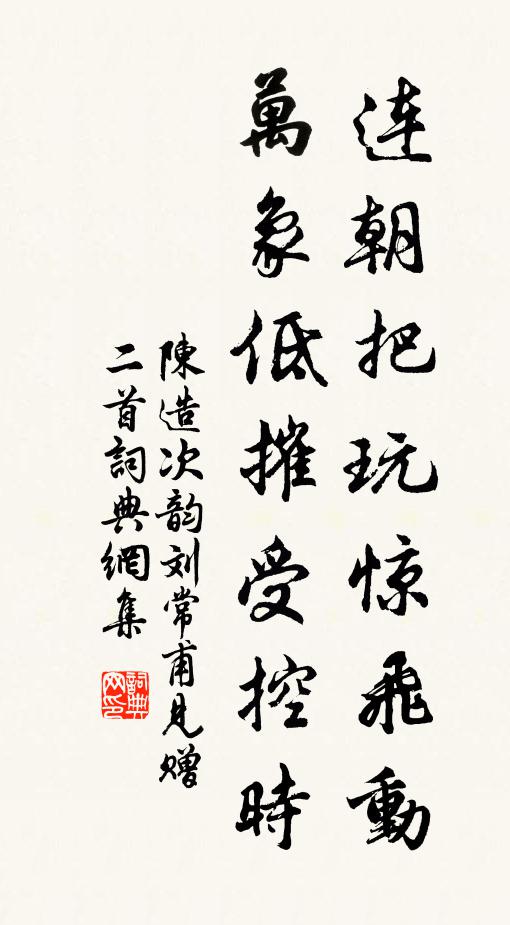 连朝把玩惊飛動
萬象低摧受控時
陳造次韵刘常甫見赠
二首詞典網集
詞典网印